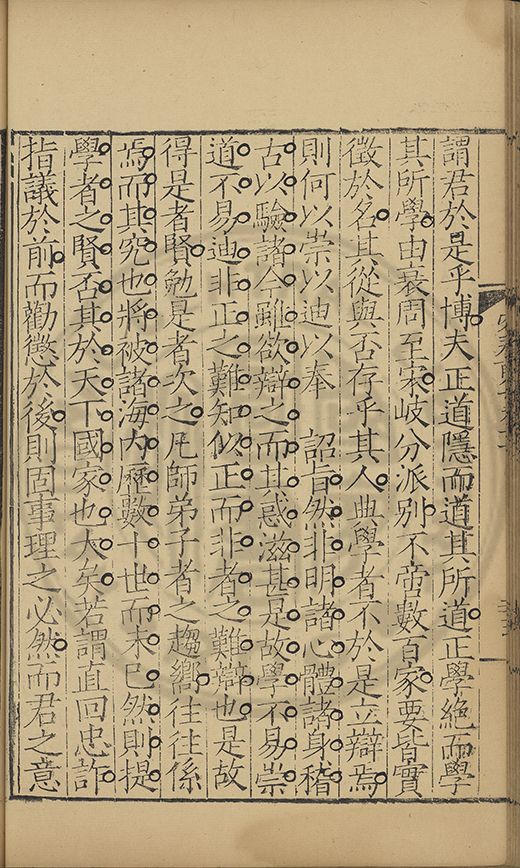 謂君於是乎博夫正道隱而道其所道正學絶而學
其所學由衰周至宋岐分派别不啻數百家要皆實
徵於名其從與否存乎其人典學者不於是立辯焉
則何以崇以迪以奉　詔旨然非明諸心體諸身稽
古以驗諸今雖欲辯之而其惑滋甚是故學不易崇
道不易迪非正之難知似正而非者之難辯也是故
得是者賢勉是者次之凡師弟子者之趨嚮往往係
焉而其究也將被諸海内歷數十世而未已然則提
學者之賢否其於天下國家也大矣若謂直回忠詐
指議於前而勸懲於後則固事理之必然而君之意